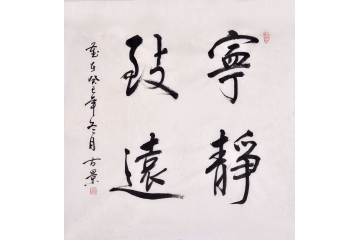 寧靜
致遠
歲在癸巳年冬月方景